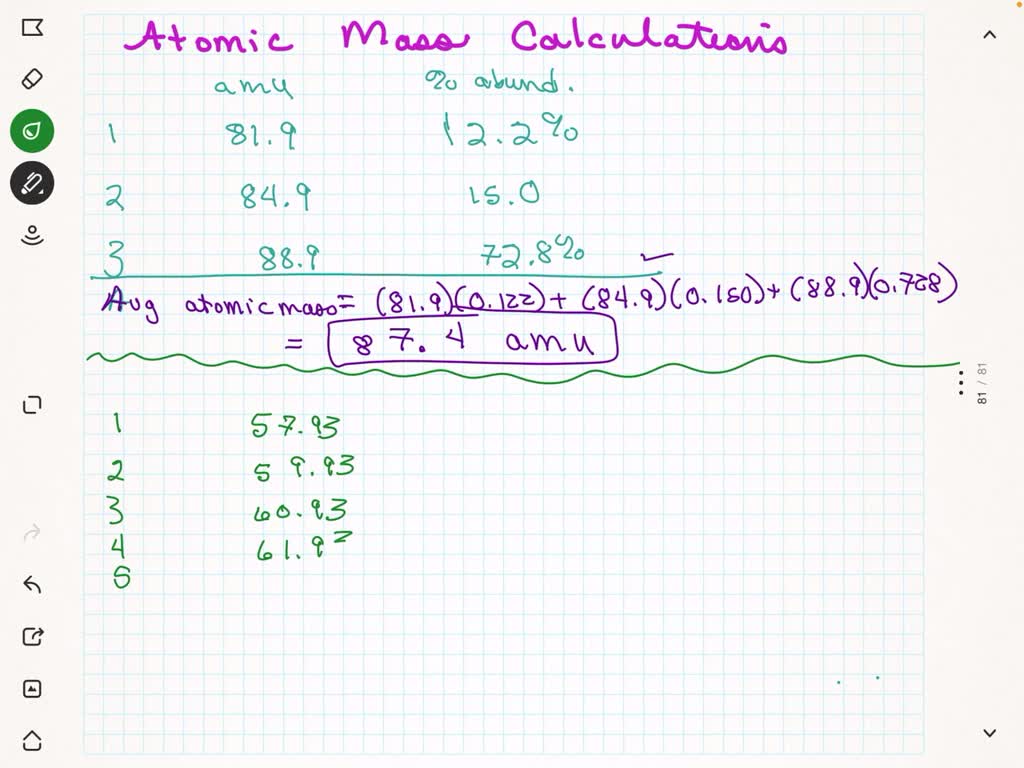 Atomic Mass Calculations
amu % abund.
1 81.9 12.2%
2 84.9 15.0
3 88.9 72.8% ✓
Avg atomic mass = (81.9)(0.122) + (84.9)(0.150) + (88.9)(0.728)
= 87.4 amu
81 / 81
1 57.93
2 59.93
3 60.93
4 61.92
5